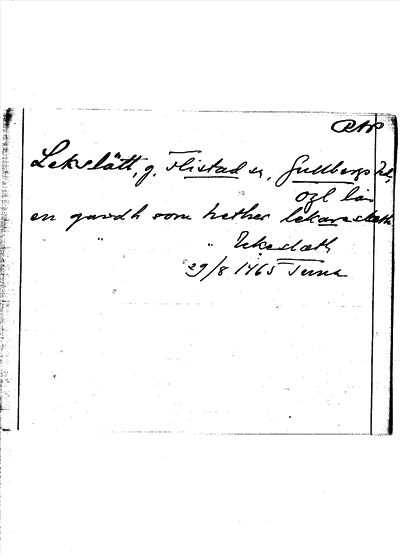 Lekslätt, g. Flistad sn, Gullbergs hd,
ögl län
en gardh som hether lekareslæth
" " Lekeslæth
29/8 1465